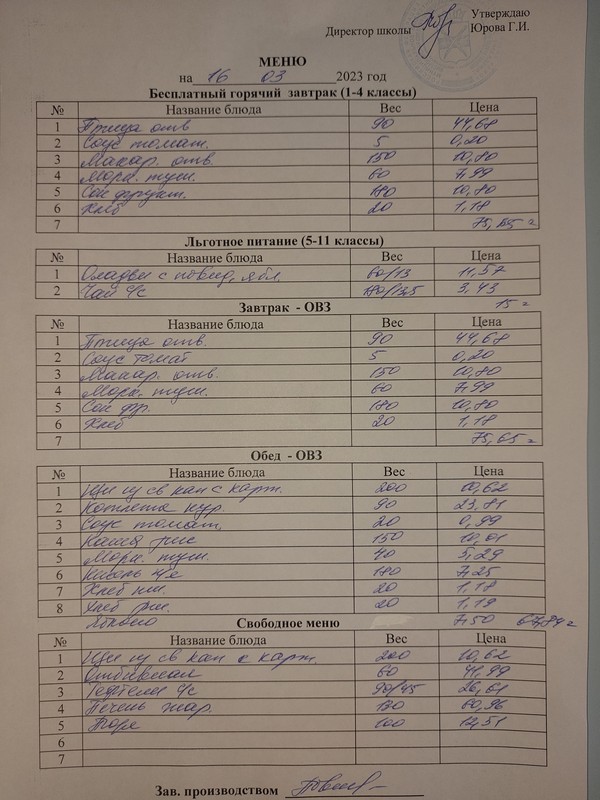 Утверждаю
Директор школы Юрова Г.И.
МЕНЮ
на 16 03 2023 год
Бесплатный горячий завтрак (1-4 классы)
№ Название блюда Вес Цена
1 Птица отв. 90 44,68
2 Соус томат. 5 0,20
3 Макар. отв. 150 10,80
4 Морк. туш. 60 7,99
5 Сок фрукт. 180 10,80
6 Хлеб 20 1,18
7 75,65 г
Льготное питание (5-11 классы)
№ Название блюда Вес Цена
1 Оладьи с повид. ябл 60/13 11,57
2 Чай б/с 180/13,5 3,43
15 г
Завтрак - ОВЗ
№ Название блюда Вес Цена
1 Птица отв. 90 44,68
2 Соус томат 5 0,20
3 Макар. отв. 150 10,80
4 Морк. туш. 60 7,99
5 Сок фр. 180 10,80
6 Хлеб 20 1,18
7 75,65 г
Обед - ОВЗ
№ Название блюда Вес Цена
1 Щи из св кап с карт. 200 10,62
2 Котлета кур. 90 23,81
3 Соус томат. 20 0,99
4 Каша рис 150 10,01
5 Морк. туш. 40 5,29
6 Кисель 180 7,25
7 Хлеб пш. 20 1,18
8 Хлеб рж. 20 1,19
Яблоко 7,50 67,84 г
Свободное меню
№ Название блюда Вес Цена
1 Щи из св кап с карт. 200 10,62
2 Отбивная 60 41,99
3 Тефтели б/с 90/45 26,61
4 Печень жар. 60,96
5 Пюре 100 12,51
6
7
Зав. производством